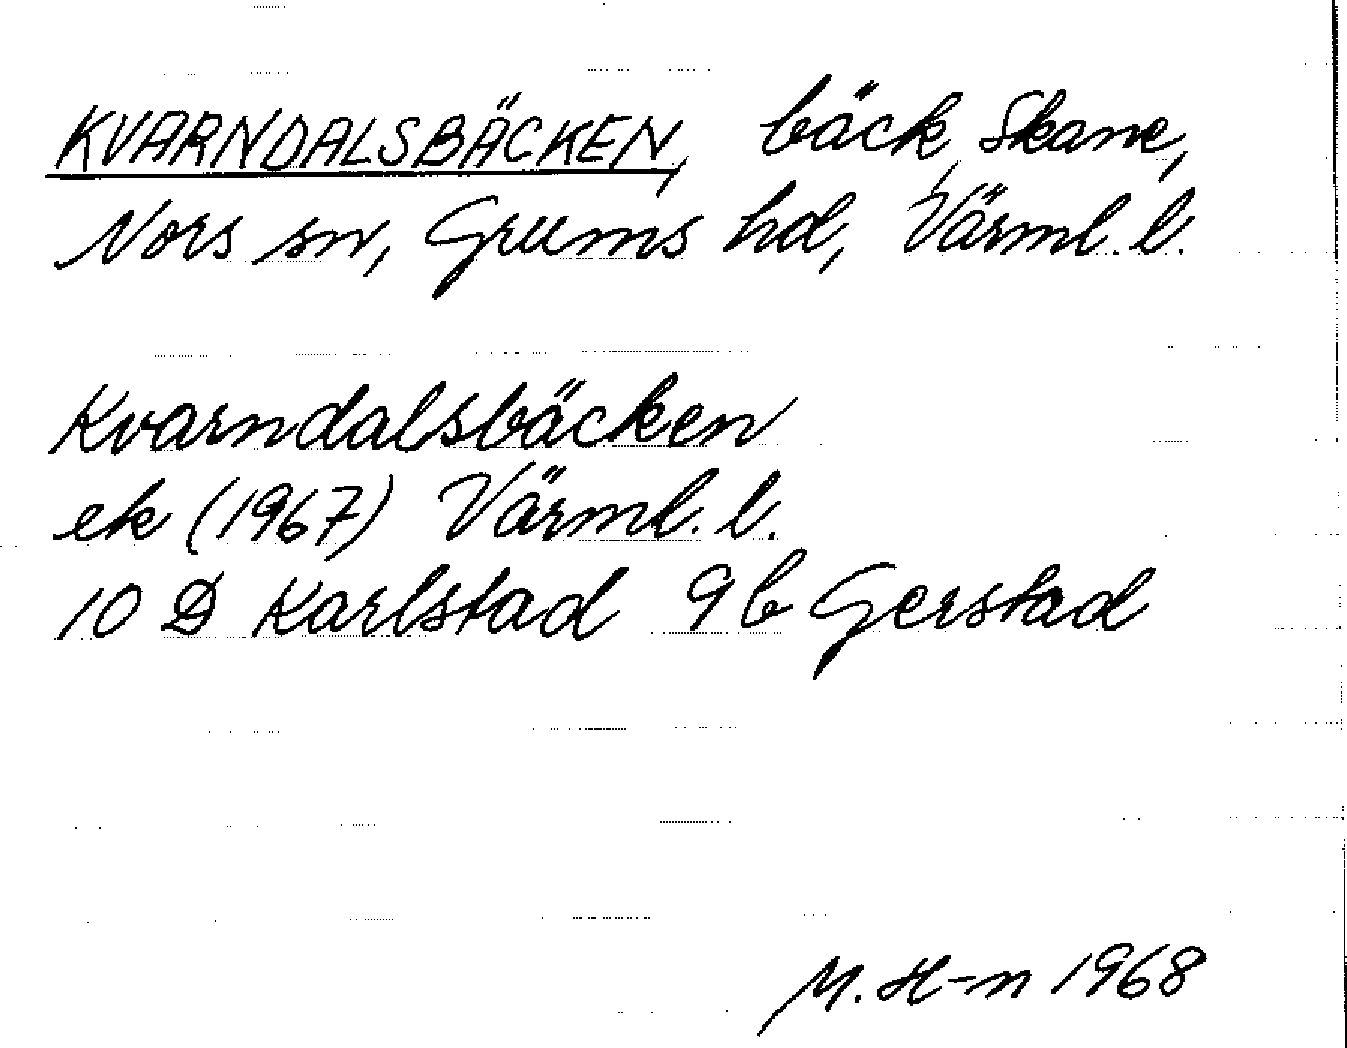 KVARNDALSBÄCKEN, bäck, Skane,
Nors sn, Grums hd, Värml. l.
Kvarndalsbäcken
ek (1967) Värml. l.
10 D Karlstad 9 b Gerstad
M. H-n 1968